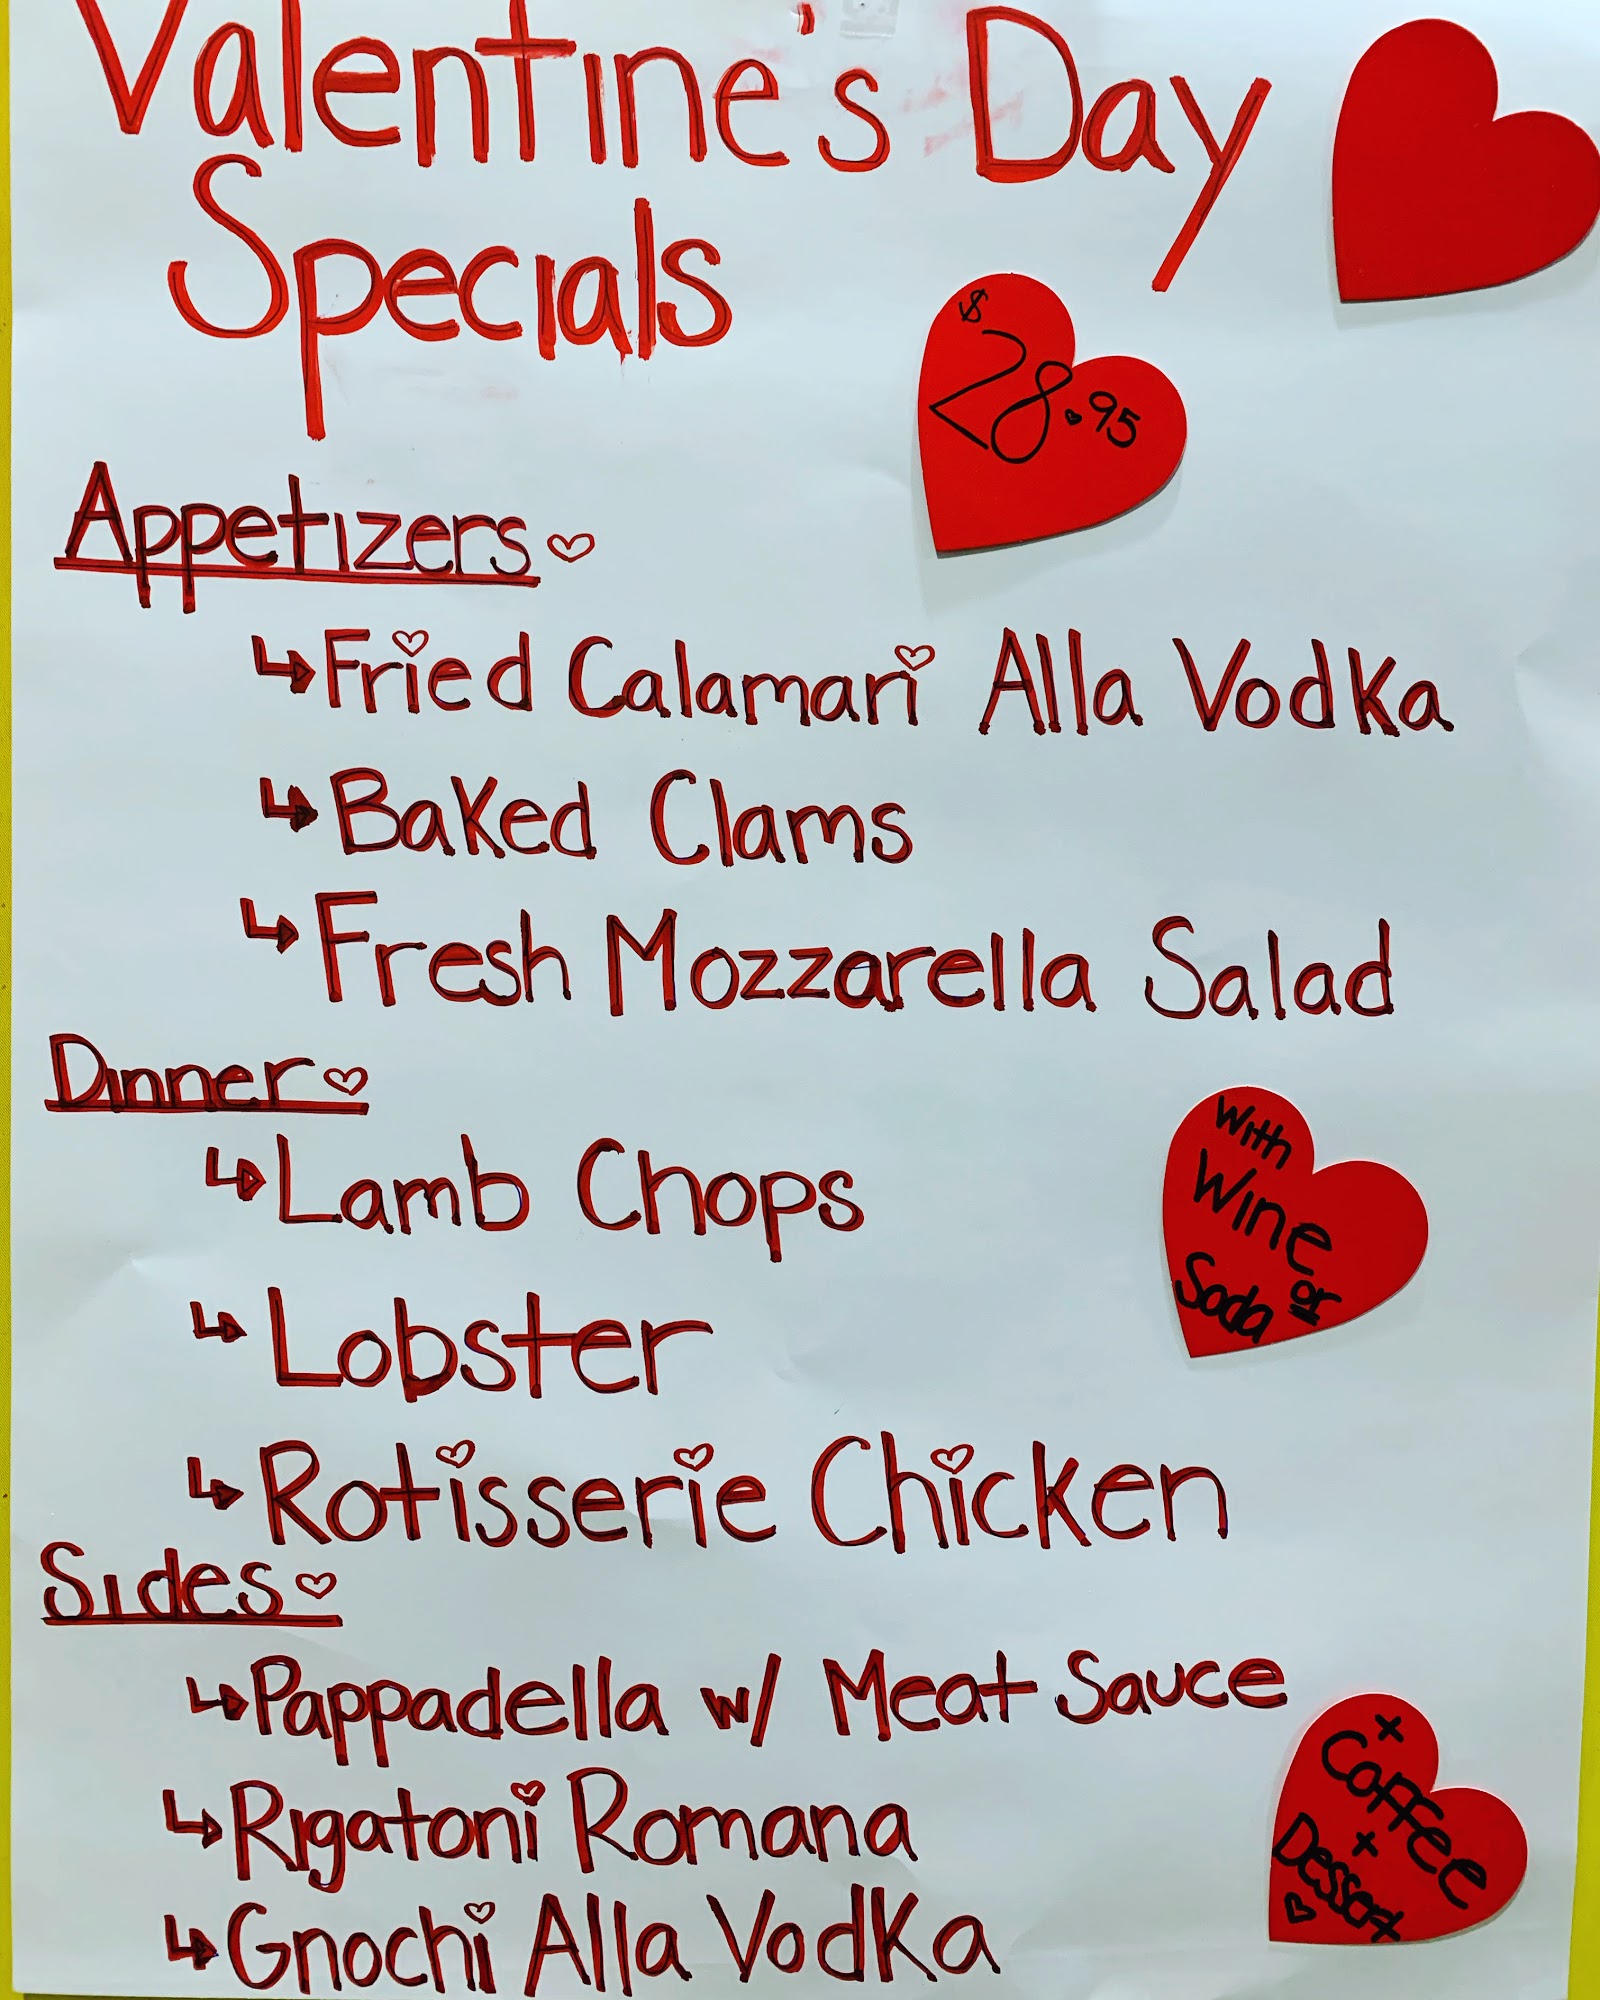 Valentine's Day
Specials
$28.95
Appetizers
Fried Calamari Alla Vodka
Baked Clams
Fresh Mozzarella Salad
Dinner
Lamb Chops
Lobster
Rotisserie Chicken
With
Wine
or
Soda
Sides
Pappadella w/ Meat Sauce
Rigatoni Romana
Gnochi Alla Vodka
+
Coffee
+
Dessert